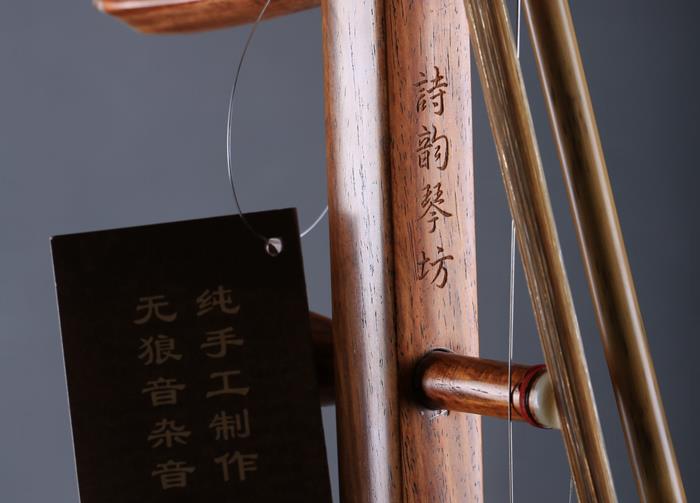 詩韵琴坊
纯手工制作
无狼音杂音